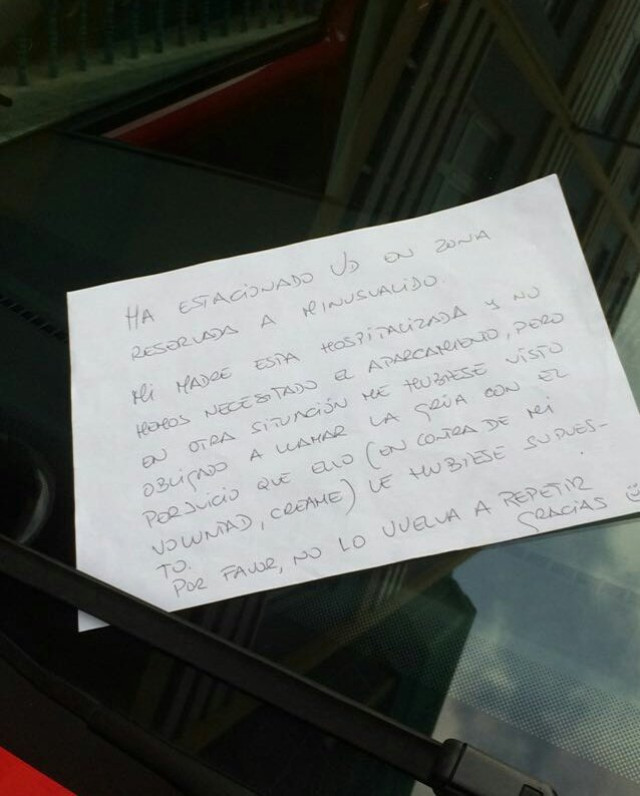 HA ESTACIONADO UD EN ZONA
RESERVADA A MINUSVALIDO.
MI MADRE ESTA HOSPITALIZADA Y NO
HEMOS NECESITADO EL APARCAMIENTO, PERO
EN OTRA SITUACIÓN ME HUBIESE VISTO
OBLIGADO A LLAMAR LA GRÚA CON EL
PERJUICIO QUE ELLO (EN CONTRA DE MI
VOLUNTAD, CREAME) LE HUBIESE SUPUES-
TO.
POR FAVOR, NO LO VUELVA A REPETIR
GRACIAS